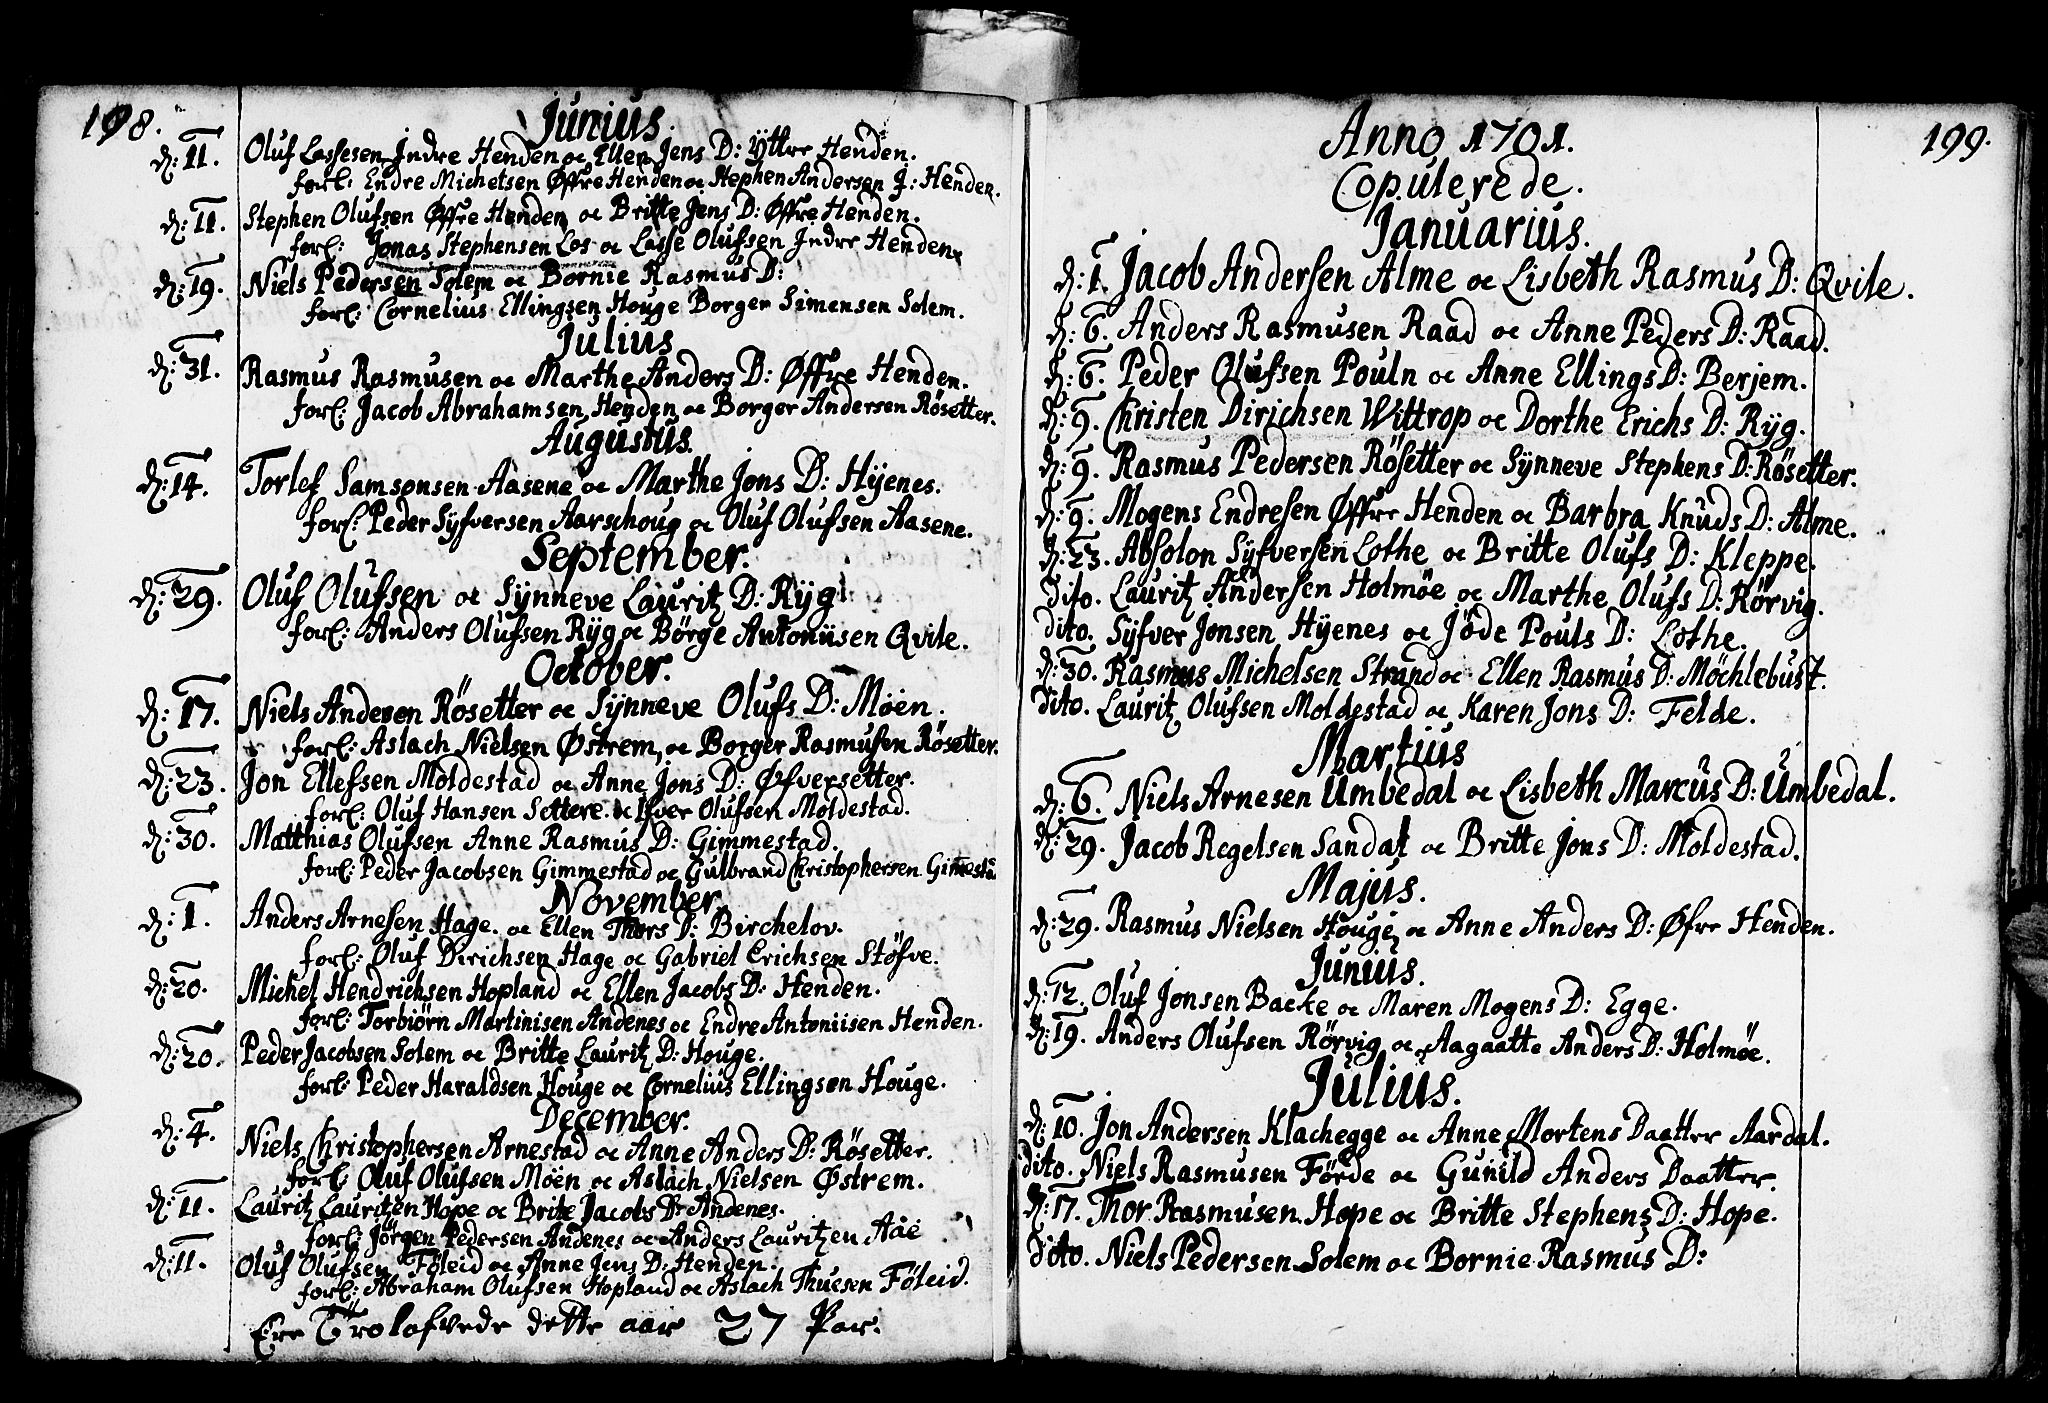 198.
Junius.
d: 11. Oluf Lassesen Indre Henden oc Ellen Jens D: Yttre Henden.
forl: Endre Michelsen Øffre Henden oc Stephen Andersen J: Henden.
d: 11. Stephen Olufsen Øffre Henden oc Britte Jens D: Øffre Henden.
forl: Jonas Stephensen Los oc Lasse Olufsen Indre Henden.
d: 19. Niels Pedersen Solem oc Bornie Rasmus D:
forl: Cornelius Ellingsen Houge Borger Simensen Solem.
Julius
d: 31. Rasmus Rasmusen oc Marthe Anders D: Øffre Henden.
forl: Jacob Abrahamsen Henden oc Borger Andersen Røsetter.
Augustus.
d: 14. Torlef Samsonsen Aasene oc Marthe Jons D: Hÿenes.
forl: Peder Sÿfversen Aarschoug oc Oluf Olufsen Aasene.
September.
d: 29. Oluf Olufsen oc Sÿnneve Lauritz D: Rÿg
forl: Anders Olufsen Rÿg oc Børge Antoniisen Qvile.
October.
d: 17. Niels Andersen Røsetter oc Sÿnneve Olufs D: Møen.
forl: Aslach Nielsen Østrem, oc Borger Rasmusen Røsetter.
d: 23. Jon Ellefsen Moldestad oc Anne Jons D: Øfversetter.
forl: Oluf Hansen Settere. oc Ifver Olufsen Moldestad.
d: 30. Matthias Olufsen Anne Rasmus D: Gimmestad.
forl: Peder Jacobsen Gimmestad oc Gulbrand Christophersen Gim̄esta
November.
d: 1. Anders Arnesen Hage. oc Ellen Thors D: Birchelov.
forl: Oluf Dirichsen Hage oc Gabriel Erichsen Støfve.
d: 20. Michel Hendrichsen Hopland oc Ellen Jacobs D: Henden.
forl: Torbiørn Martinisen Andenes oc Endre Antoniisen Henden.
d: 20. Peder Jacobsen Solem oc Britte Lauritz D: Houge.
forl: Peder Haraldsen Houge oc Cornelius Ellingsen Houge.
December.
d: 4. Niels Christophersen Arnestad oc Anne Anders D: Røsetter.
forl: Oluf Olufsen Möen oc Aslach Nielsen Østrem.
d: 11. Lauritz Lauritzen Hope oc Brite Jacobs Dr Andenes.
forl: Jörgen Pedersen Andenes oc Anders Lauritzen Aae
d: 11. Oluf Olufsen Föleid oc Anne Jens D: Henden.
forl: Abraham Olufsen Hopland oc Aslach Thuesen Föleid.
Ere Trolofvede dette aar 27 Par.
199.
Anno 1701.
Copulerede.
Januarius.
d: 1. Jacob Andersen Alme oc Lisbeth Rasmus D: Qvile.
d: 6. Anders Rasmusen Raad oc Anne Peders D: Raad.
d: 6. Peder Olufsen Pouln oc Anne Ellings D: Berjem.
d: 9. Christen Dirichsen Wittrop oc Dorthe Erichs D: Rÿg.
d: 9. Rasmus Pedersen Rösetter oc Sÿnneve Stephens D: Røsetter.
d: 9. Mogens Endresen Øffre Henden oc Barbra Knuds D: Alme.
d: 23. Absolon Sÿfversen Lothe oc Britte Olufs D: Kleppe.
dito. Lauritz Andersen Holmöe oc Marthe Olufs D: Rörvig.
dito. Sÿfver Jonsen Hÿenes oc Jöde Pouls D: Lothe.
d: 30. Rasmus Michelsen Strand oc Ellen Rasmus D: Möchlebust.
dito. Lauritz Olufsen Moldestad oc Karen Jons D: Felde.
Martius
d: 6. Niels Arnesen Umbedal oc Lisbeth Marcus D: Umbedal.
d: 29. Jacob Regelsen Sandal oc Britte Jons D: Moldestad.
Majus.
d: 29. Rasmus Nielsen Houge oc Anne Anders D: Øfre Henden.
Junius.
d: 12. Oluf Jonsen Backe oc Maren Mogens D: Egge.
d: 19. Anders Olufsen Rörvig oc Aagaatte Anders D: Holmöe.
Julius.
d: 10. Jon Andersen Klachegge oc Anne Mortens Daatter Aardal.
dito. Niels Rasmusen Förde oc Gunild Anders Daatter.
d: 17. Thor Rasmusen Hope oc Britte Stephens D: Hope.
dito. Niels Pedersen Solem oc Bornie Rasmus D: